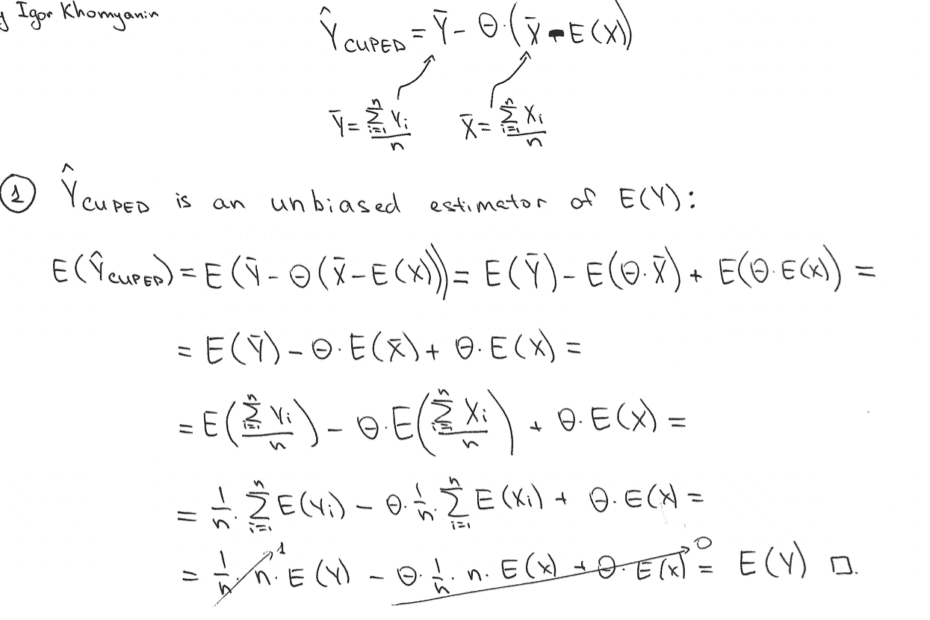 y Igor Khomyanin
Ŷ CUPED = Ȳ - Θ·(X̄ - E(X))
Ȳ = Σⁿᵢ₌₁ Yᵢ / n   X̄ = Σⁿᵢ₌₁ Xᵢ / n
① Ŷ CUPED is an unbiased estimator of E(Y):
E(Ŷ CUPED) = E(Ȳ - Θ(X̄ - E(X))) = E(Ȳ) - E(Θ·X̄) + E(Θ·E(X)) =
= E(Ȳ) - Θ·E(X̄) + Θ·E(X) =
= E(Σⁿᵢ₌₁ Yᵢ / n) - Θ·E(Σⁿᵢ₌₁ Xᵢ / n) + Θ·E(X) =
= 1/n · Σⁿᵢ₌₁ E(Yᵢ) - Θ· 1/n · Σⁿᵢ₌₁ E(Xᵢ) + Θ·E(X) =
= 1/n · n · E(Y) - Θ· 1/n · n · E(X) + Θ·E(X) = E(Y) □.
1
0